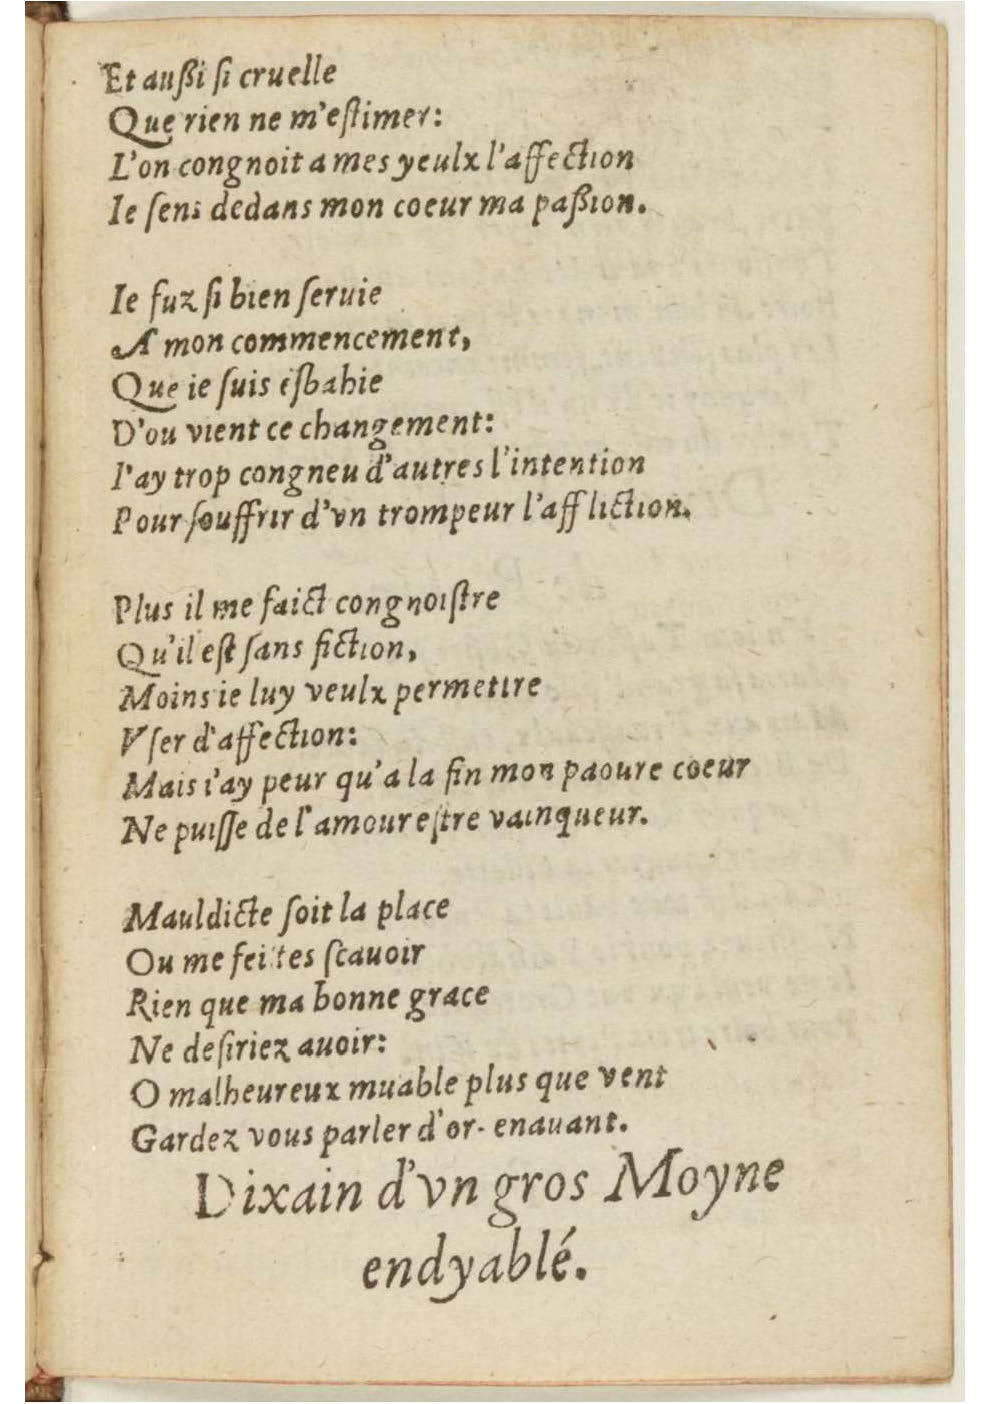 Et außi ſi cruelle
Que rien ne m'eſtimer:
L'on congnoit a mes yeulx l'affection
Ie ſens dedans mon coeur ma paßion.
Ie fuz ſi bien ſeruie
A mon commencement,
Que ie ſuis eſbahie
D'ou vient ce changement:
I'ay trop congneu d'autres l'intention
Pour ſouffrir d'vn trompeur l'affliction.
Plus il me faict congnoiſtre
Qu'il eſt ſans fiction,
Moins ie luy veulx permettre
Vſer d'affection:
Mais i'ay peur qu'a la fin mon paoure coeur
Ne puiſſe de l'amour eſtre vainqueur.
Mauldicte ſoit la place
Ou me feiſtes ſcauoir
Rien que ma bonne grace
Ne deſiriez auoir:
O malheureux muable plus que vent
Gardez vous parler d'or-enauant.
Dixain d'vn gros Moyne
endyablé.